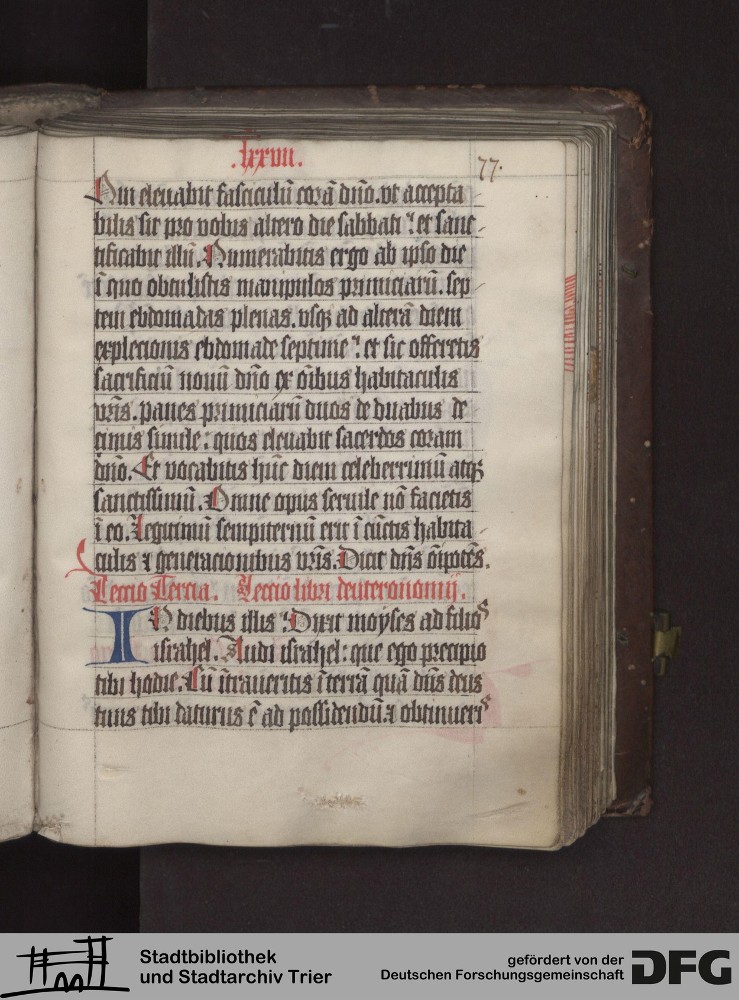 .lxxvii.
77.
Qui eleuabit fasciculū corā dño. vt accepta
bilis sit pro vobis altero die sabbati ⁊ et sanc
tificabit illū. Numerabitis ergo ab ipso die
ī quo obtulistis manipulos primiciarū. sep
tem ebdomadas plenas. vsqꝫ ad alterā diem
explecionis ebdomade septime ⁊ et sic offeretis
sacrificiū nouū dño ex oībus habitaculis
vr̄is. panes primiciarū duos de duabus de
cimis simile : quos eleuabit sacerdos coram
dño. Et vocabitis hūc diem celeberrimū atqꝫ
sanctissimū. Omne opus seruile nō facietis
ī eo. Legitimū sempiternū erit ī cūctis habita
culis ⁊ generacionibus vr̄is. Dicit dñs oīpotēs.
Leccio Tercia. Leccio libri deuteronomij.
IN diebus illis : Dixit moyses ad filios
israhel. Audi israhel : que ego precipio
tibi hodie. Cū ītraueritis ī terrā quā dñs deus
tuus tibi daturus ē ad possidendū. ⁊ obtinueris
Stadtbibliothek
und Stadtarchiv Trier
gefördert von der
Deutschen Forschungsgemeinschaft
DFG